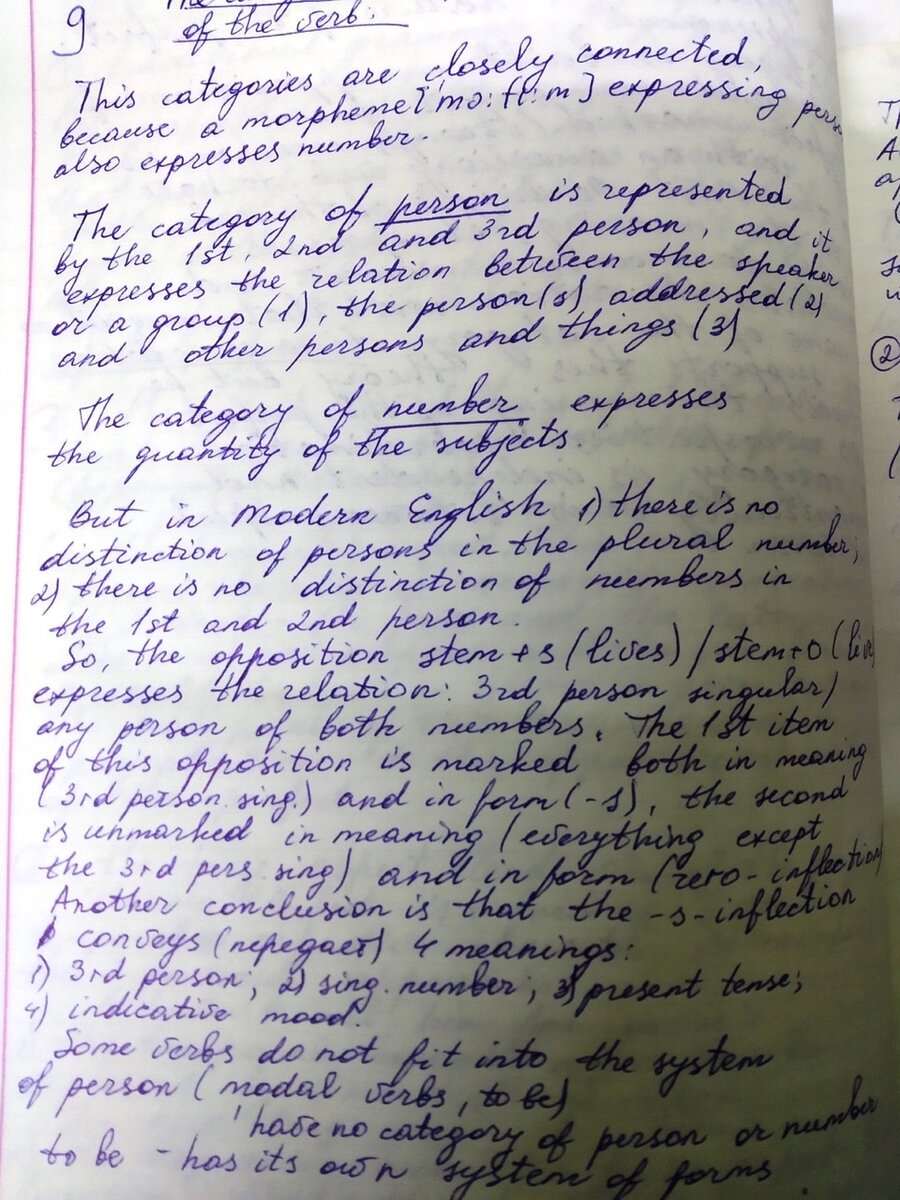 9
of the verb.
This categories are closely connected,
because a morpheme ['mɔ:fi:m] expressing
also expresses number.
The category of person is represented
by the 1st, 2nd and 3rd person, and it
expresses the relation between the speaker
or a group (1), the person(s) addressed (2)
and other persons and things (3)
The category of number expresses
the quantity of the subjects.
But in Modern English 1) there is no
distinction of persons in the plural number;
2) there is no distinction of numbers in
the 1st and 2nd person.
So, the opposition stem + s (lives) / stem + 0
expresses the relation: 3rd person singular /
any person of both numbers. The 1st item
of this opposition is marked both in meaning
(3rd person sing.) and in form (-s), the second
is unmarked in meaning (everything except
the 3rd pers. sing) and in form (zero-inflection)
Another conclusion is that the -s-inflection
conveys (передает) 4 meanings:
1) 3rd person; 2) sing. number; 3) present tense;
4) indicative mood.
Some verbs do not fit into the system
of person (modal verbs, to be)
have no category of person or number
to be - has its own system of forms
2